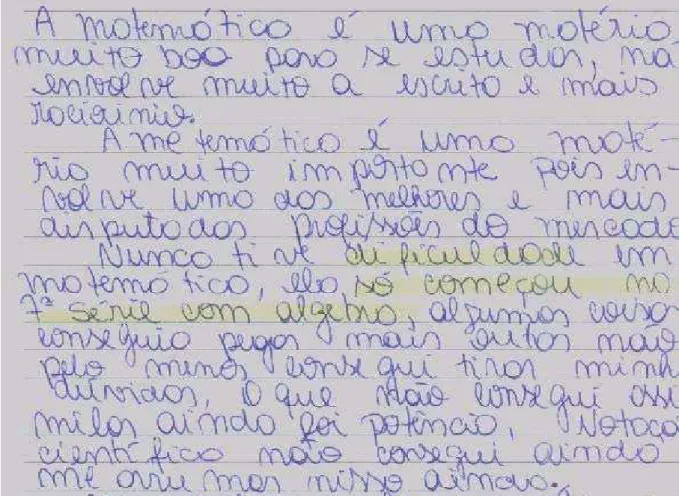 A matemática é uma matéria
muito boa para se estudar, nã
envolve muito a escrita e mais
raciocinio.
A matemática é uma maté-
ria muito importante pois en-
volve uma das melhores e mais
disputadas profissões do mercado
Nunca tive dificuldade em
matemática, ela só começou na
7ª série com algebra, algumas coisas
conseguia pegar mais outas não
pelo menos consegui tirar minh
dúvidas, O que não consegui assi
milar ainda foi potência, Notaçã
científica não consegui ainda
me arrumar nisso ainda.